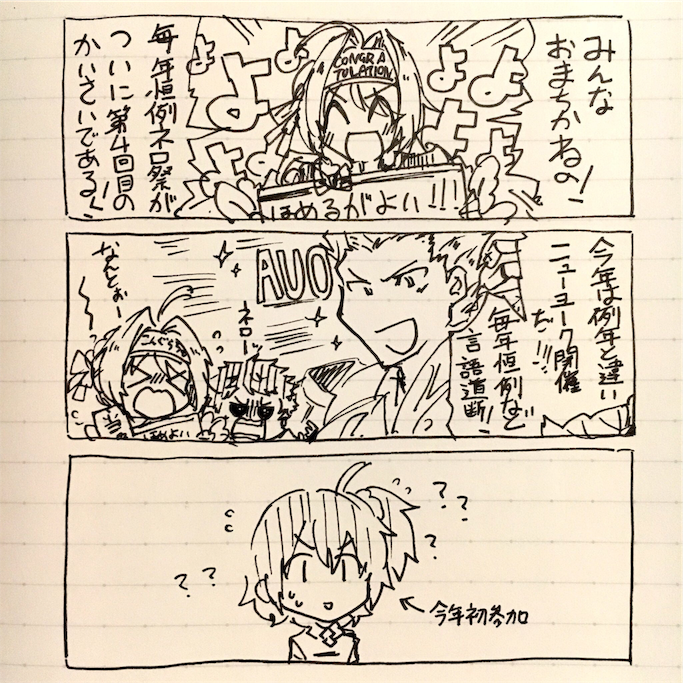 みんな
おまちかねの!
CONGRA
TULATION
よ
よ
よ
よ
よ
よ
よ
よ
毎年恒例ネロ祭が
ついに第4回目の
かいさいである!
ほめるがよい!!!
今年は例年と違い
ニューヨーク開催
だ!!!
毎年恒例など
言語道断!
AUO
ネロー
なんとぉー
こんぐらっ
ほめよい
?
?
?
?
?
今年初参加